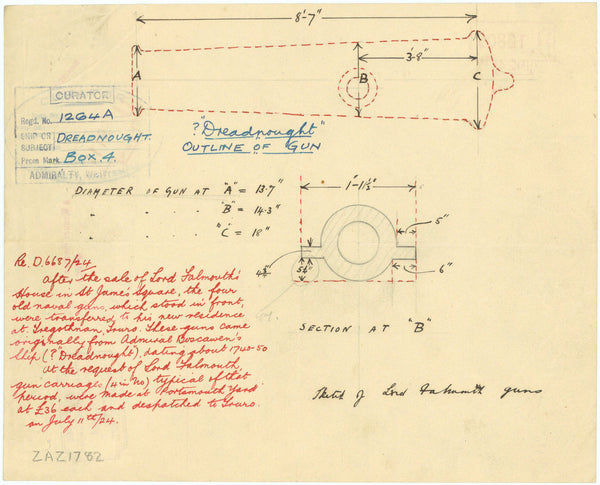 8'-7"
3'-8"
A
B
C
CURATOR
Regd. No. 1264A
SHIP OR
SUBJECT DREADNOUGHT.
From Mark Box.4.
ADMIRALTY,
? "Dreadnought"
OUTLINE OF GUN
DIAMETER OF GUN AT "A" = 13.7"
" " " "B" = 14.3"
" " " "C" = 18"
1'-11½"
5"
6"
5½"
SECTION AT "B"
Re. D.6687/24
After the sale of Lord Falmouth's
House in St James Square, the four
old naval guns, which stood in front,
were transferred to his new residence
at Tregothnan, Truro. These guns came
originally from Admiral Boscawen's
Ship (? "Dreadnought"), dating about 1740-50
At the request of Lord Falmouth,
gun carriages (4 in No) typical of that
period, were made at Portsmouth Yard
at £36 each and despatched to Truro.
on July 11th/24.
Sketch of Lord Falmouth guns
ZAZ1782